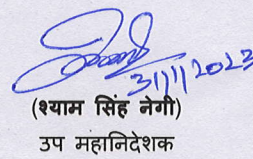 31/1/2023
(श्याम सिंह नेगी)
उप महानिदेशक